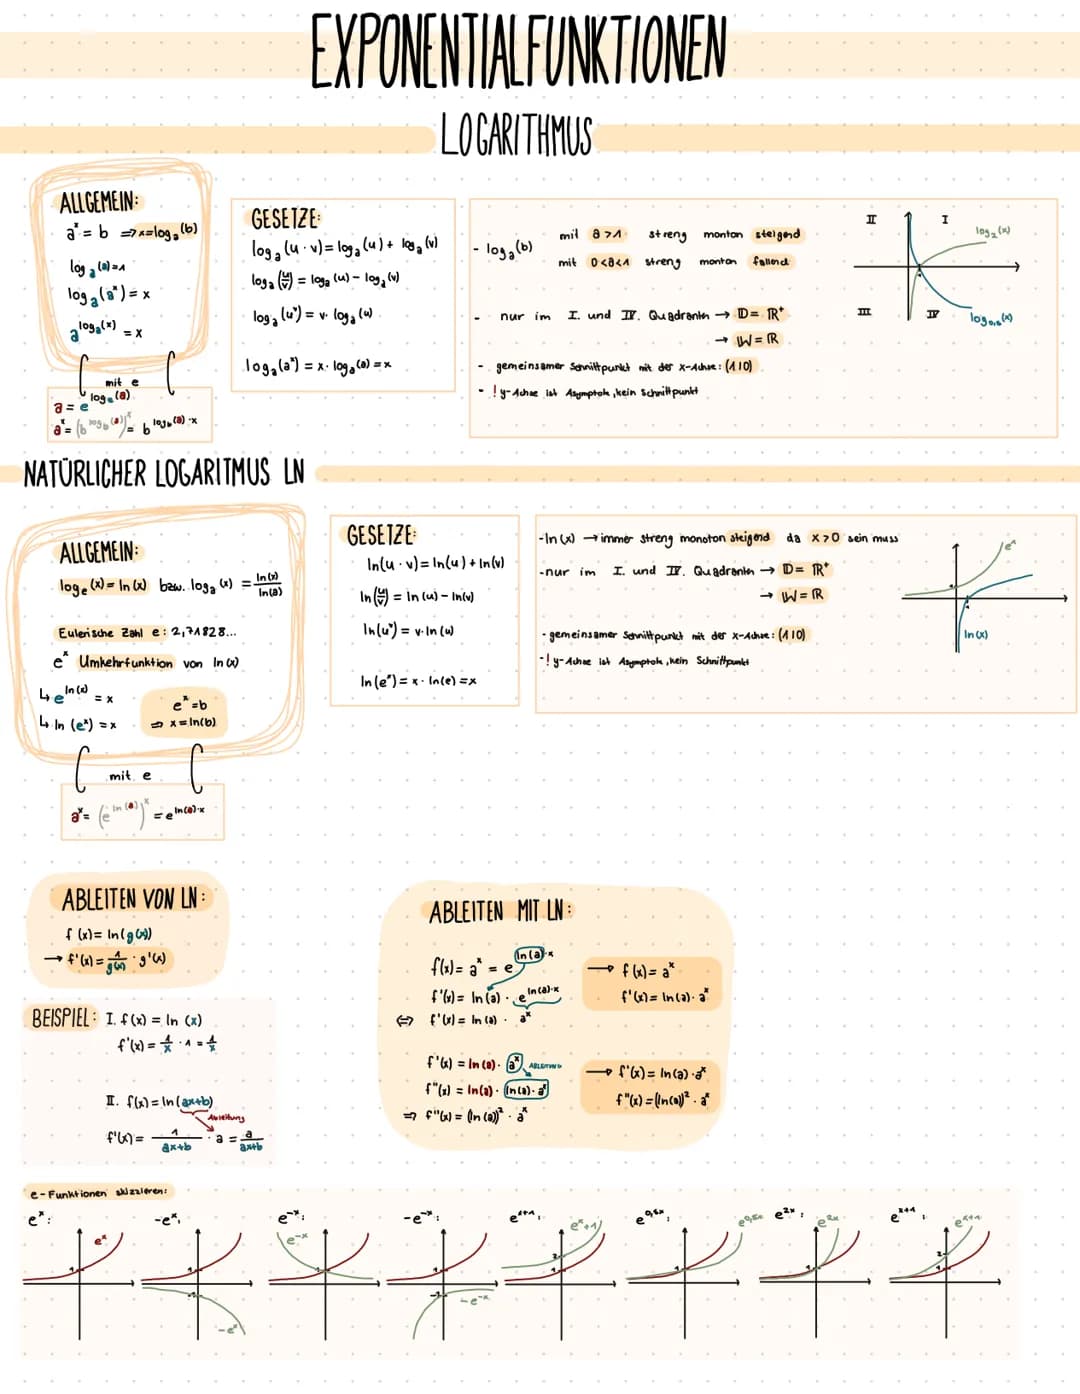 EXPONENTIALFUNKTIONEN
LOGARITHMUS
ALLGEMEIN:
aˣ = b ⇒ x=logₐ(b)
logₐ(a)=1
logₐ(aˣ) = x
a^logₐ(x) = x
mit e
a = e^logₑ(a)
aˣ = (b^log_b(a))ˣ = b^log_b(a)·x
GESETZE:
logₐ(u · v) = logₐ(u) + logₐ(v)
logₐ(u/v) = logₐ(u) − logₐ(v)
logₐ(uᵛ) = v · logₐ(u)
logₐ(aˣ) = x · logₐ(a) = x
- logₐ(b) mit a>1 streng monton steigend
mit 0<a<1 streng monton fallend
- nur im I. und IV. Quadranten → D = R⁺
→ W = R
- gemeinsamer Schnittpunkt mit der x-Achse: (1|0)
- ! y-Achse ist Asymptote, kein Schnittpunkt
II I
log₂(x)
III IV
log₀,₅(x)
NATÜRLICHER LOGARITMUS LN
ALLGEMEIN:
logₑ(x) = ln(x) bzw. logₐ(x) = ln(x)/ln(a)
Eulerische Zahl e: 2,71828...
eˣ Umkehrfunktion von ln(x)
↳ e^ln(x) = x
↳ ln(eˣ) = x
eˣ = b
⇒ x = ln(b)
mit e
aˣ = (e^ln(a))ˣ = e^ln(a)·x
GESETZE:
ln(u · v) = ln(u) + ln(v)
ln(u/v) = ln(u) − ln(v)
ln(uᵛ) = v · ln(u)
ln(eˣ) = x · ln(e) = x
- ln(x) → immer streng monoton steigend da x>0 sein muss
- nur im I. und IV. Quadranten → D = R⁺
→ W = R
- gemeinsamer Schnittpunkt mit der x-Achse: (1|0)
- ! y-Achse ist Asymptote, kein Schnittpunkt
eˣ
ln(x)
ABLEITEN VON LN:
f(x) = ln(g(x))
→ f'(x) = 1/g(x) · g'(x)
BEISPIEL: I. f(x) = ln(x)
f'(x) = 1/x · 1 = 1/x
II. f(x) = ln(ax+b)
Ableitung
f'(x) = 1/(ax+b) · a = a/(ax+b)
ABLEITEN MIT LN:
f(x) = aˣ = e^ln(a)·x
f'(x) = ln(a) · e^ln(a)·x
⇔ f'(x) = ln(a) · aˣ
→ f(x) = aˣ
f'(x) = ln(a) · aˣ
f'(x) = ln(a) · aˣ ABLEITUNG
f''(x) = ln(a) · ln(a) · aˣ
⇒ f''(x) = (ln(a))² · aˣ
→ f'(x) = ln(a) · aˣ
f''(x) = (ln(a))² · aˣ
e-Funktionen skizzieren:
eˣ: -eˣ: e⁻ˣ: -e⁻ˣ: eˣ⁺¹: e^0,5x: e^2x: e^x+1:
eˣ -eˣ e⁻ˣ -e⁻ˣ eˣ+1 e^0,5x e^2x e^x+1
1 1 1 1 2 1 1 1 2 1